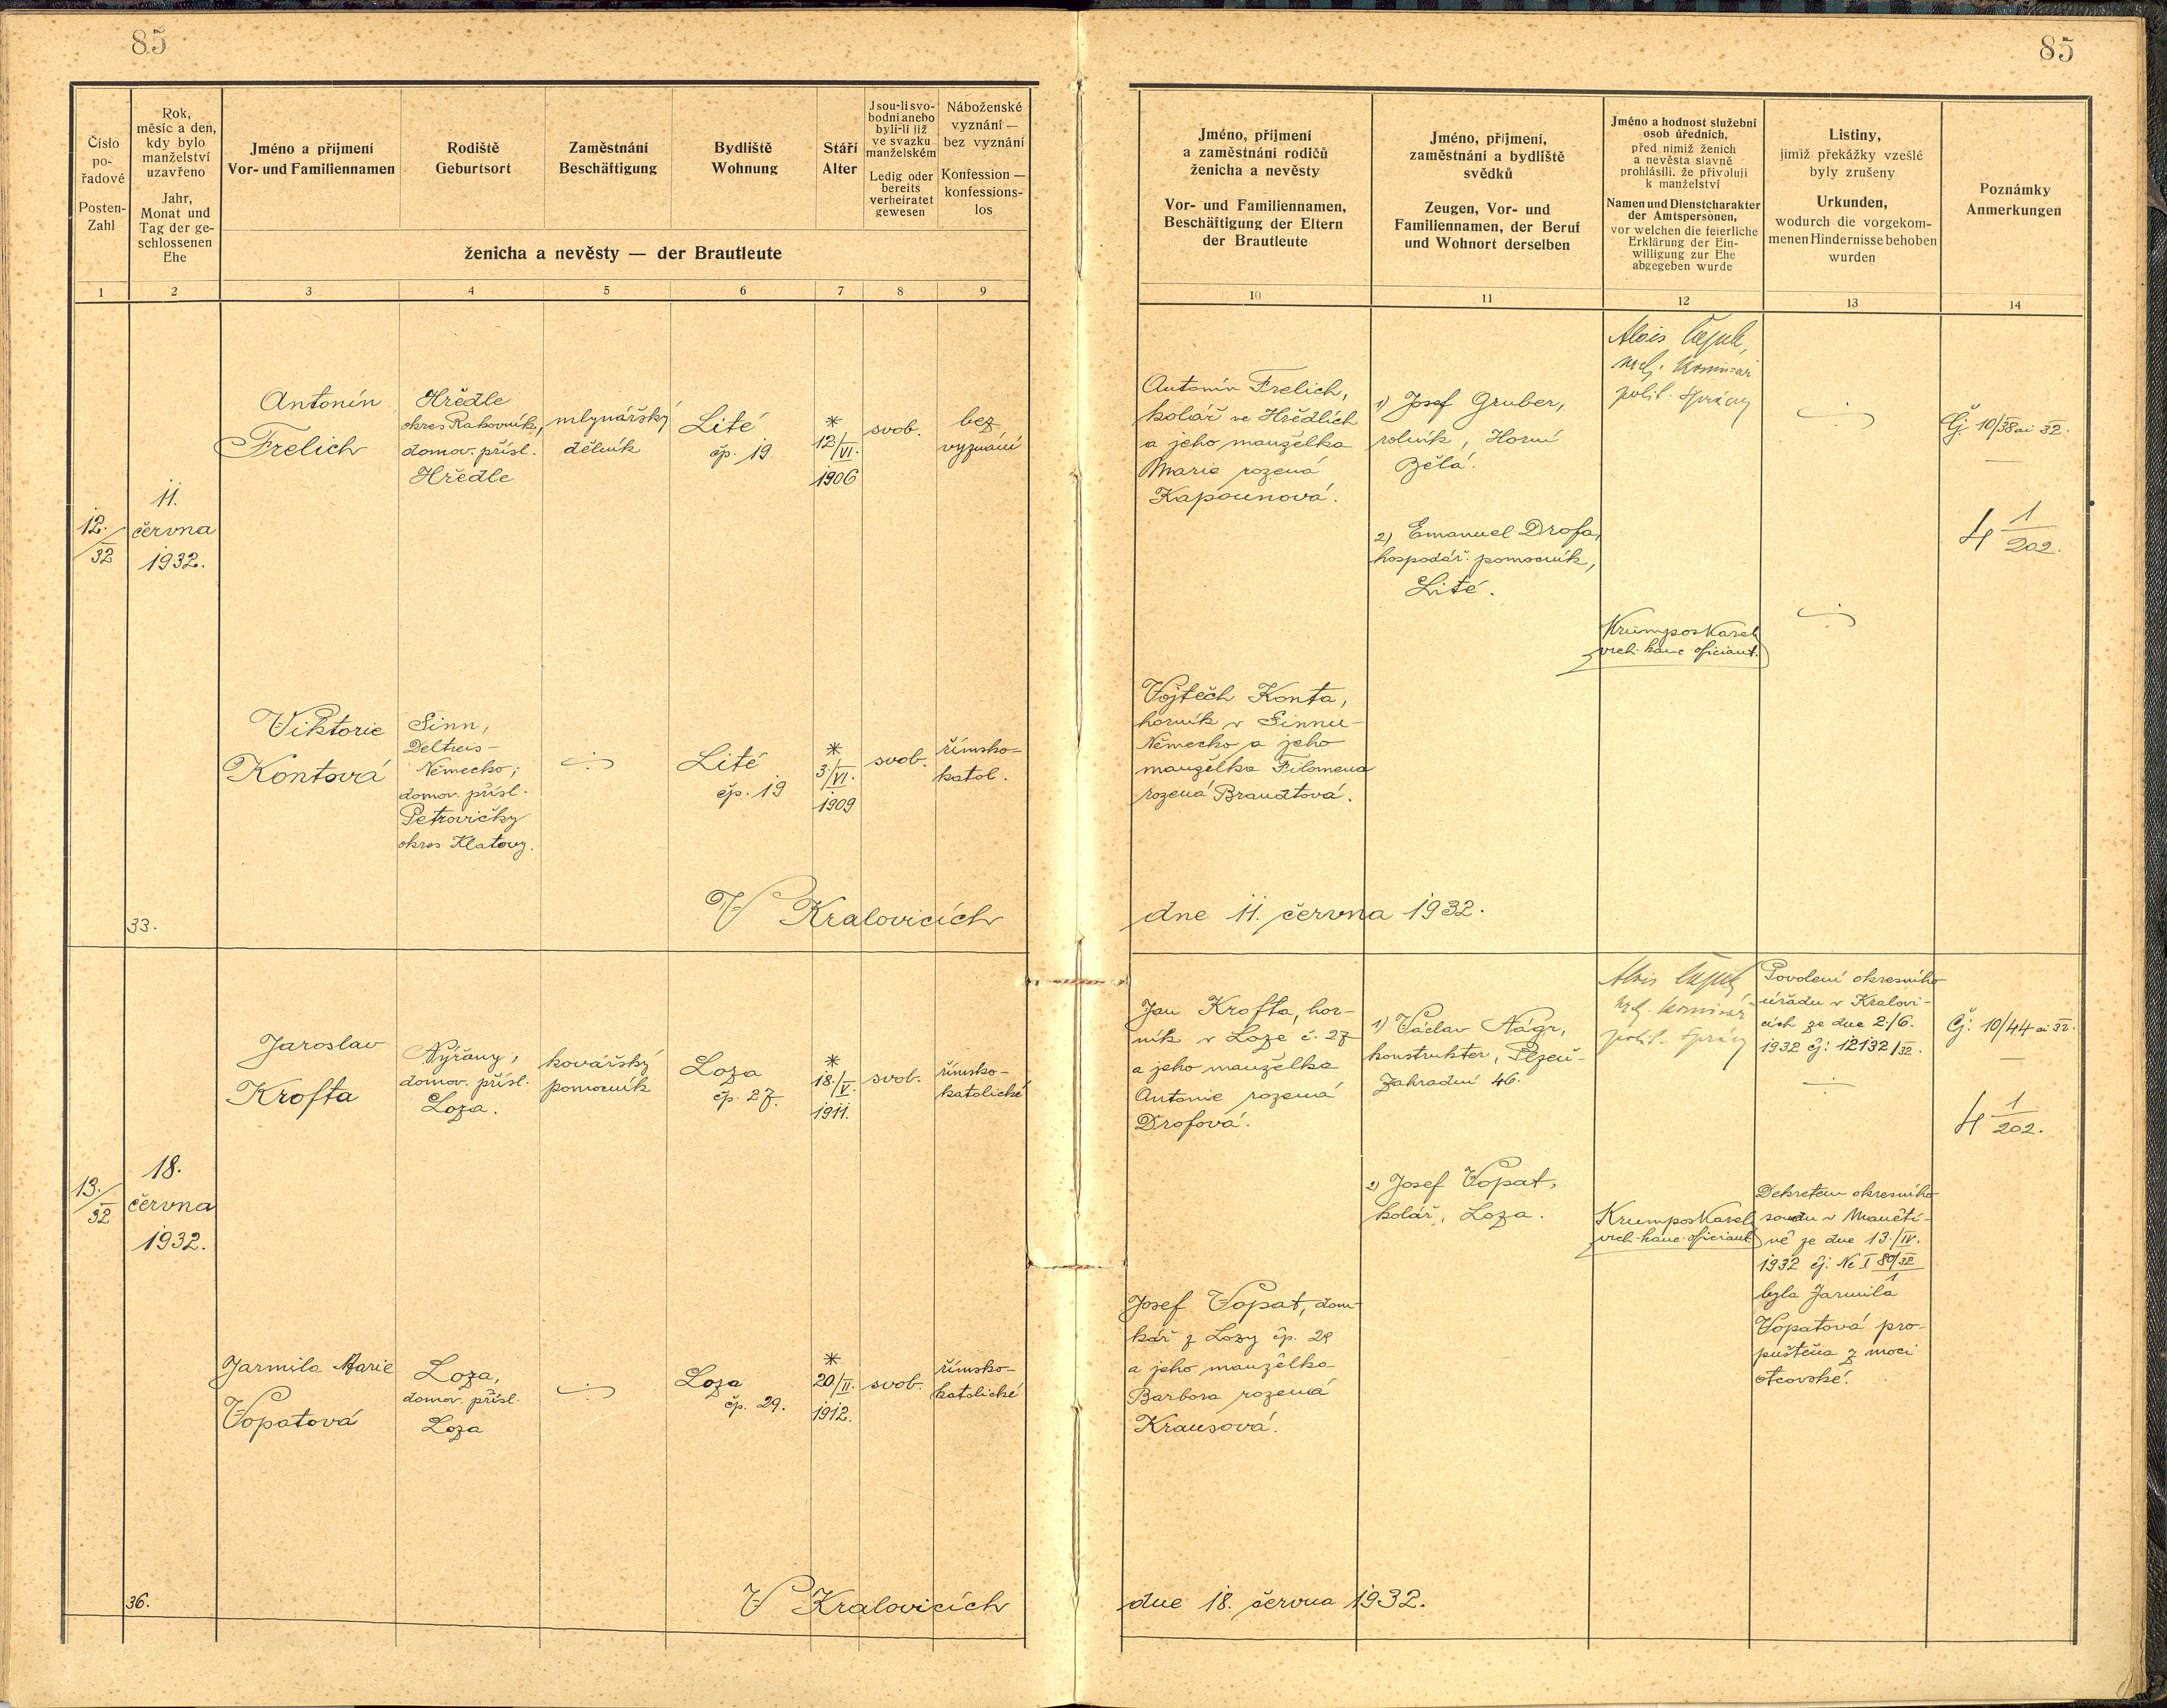 85
85
Číslo
po-
řadové
Posten-
Zahl
Rok,
měsíc a den,
kdy bylo
manželství
uzavřeno
Jahr,
Monat und
Tag der ge-
schlossenen
Ehe
Jméno a přijmení
Vor- und Familiennamen
Rodiště
Geburtsort
Zaměstnání
Beschäftigung
Bydliště
Wohnung
Stáří
Alter
Jsou-li svo-
bodni anebo
byli-li již
ve svazku
manželském
Ledig oder
bereits
verheiratet
gewesen
Náboženské
vyznání —
bez vyznání
Konfession —
konfessions-
los
ženicha a nevěsty — der Brautleute
Jméno, přijmení
a zaměstnání rodičů
ženicha a nevěsty
Vor- und Familiennamen,
Beschäftigung der Eltern
der Brautleute
Jméno, přijmení,
zaměstnání a bydliště
svědků
Zeugen, Vor- und
Familiennamen, der Beruf
und Wohnort derselben
Jméno a hodnost služební
osob úředních,
před nimiž ženich
a nevěsta slavně
prohlásili, že přivolují
k manželství
Namen und Dienstcharakter
der Amtspersonen,
vor welchen die feierliche
Erklärung der Ein-
willigung zur Ehe
abgegeben wurde
Listiny,
jimiž překážky vzešlé
byly zrušeny
Urkunden,
wodurch die vorgekom-
menen Hindernisse behoben
wurden
Poznámky
Anmerkungen
1 2 3 4 5 6 7 8 9 10 11 12 13 14
12./32
11.
června
1932.
Antonín
Frelich
Hředle
okres Rakovník,
domov. přísl.
Hředle
mlynářský
dělník
Lité
čp. 19.
*
12/VI.
1906
svob.
bez
vyznání
Antonín Frelich,
kolář ve Hředlích
a jeho manželka
Marie rozená
Kapounová.
1) Josef Gruber,
rolník, Horní
Bělá.
2) Emanuel Drofa,
hospodář. pomocník,
Lité.
Alois
polit. správy
Krumpos Karel
vrch. kanc. oficiant.
Čj: 10/38 ai 32.
4 1/202.
Viktorie
Kontová
Sinn,
Německo;
domov. přísl.
Petrovičky
okres Klatovy.
Lité
čp. 19
*
3./VI.
1909
svob.
římsko-
katol.
Vojtěch Konta,
horník v Sinnu-
Německo a jeho
manželka Filomena
rozená Brandtová.
33.
V Kralovicích
dne 11. června 1932.
13./32
18.
června
1932.
Jaroslav
Krofta
Nýřany,
domov. přísl.
Loza.
kovářský
pomocník
Loza
čp. 27.
*
18./V.
1911.
svob.
římsko-
katolické
Jan Krofta, hor-
ník v Loze č. 27
a jeho manželka
Antonie rozená
Drofová.
1) Václav Nágr,
konstruktér, Plzeň-
Zahradní 46.
2) Josef Vopat,
kolář, Loza.
Alois
polit. správy
Krumpos Karel
vrch. kanc. oficiant
Povolení okresního
úřadu v Kralovi-
cích ze dne 2./6.
1932 čj: 12132/32.
Dekretem okresního
soudu v Manětí-
ně ze dne 13./IV.
1932 čj: Nc I 80/32
1
byla Jarmila
Vopatová pro-
puštěna z moci
otcovské.
Čj: 10/44 ai 32.
4 1/202.
Jarmila Marie
Vopatová
Loza,
domov. přísl.
Loza
Loza
čp. 29.
*
20./II.
1912.
svob.
římsko-
katolické
Josef Vopat, dom-
kář z Lozy čp. 29
a jeho manželka
Barbora rozená
Krausová.
36.
V Kralovicích
dne 18. června 1932.